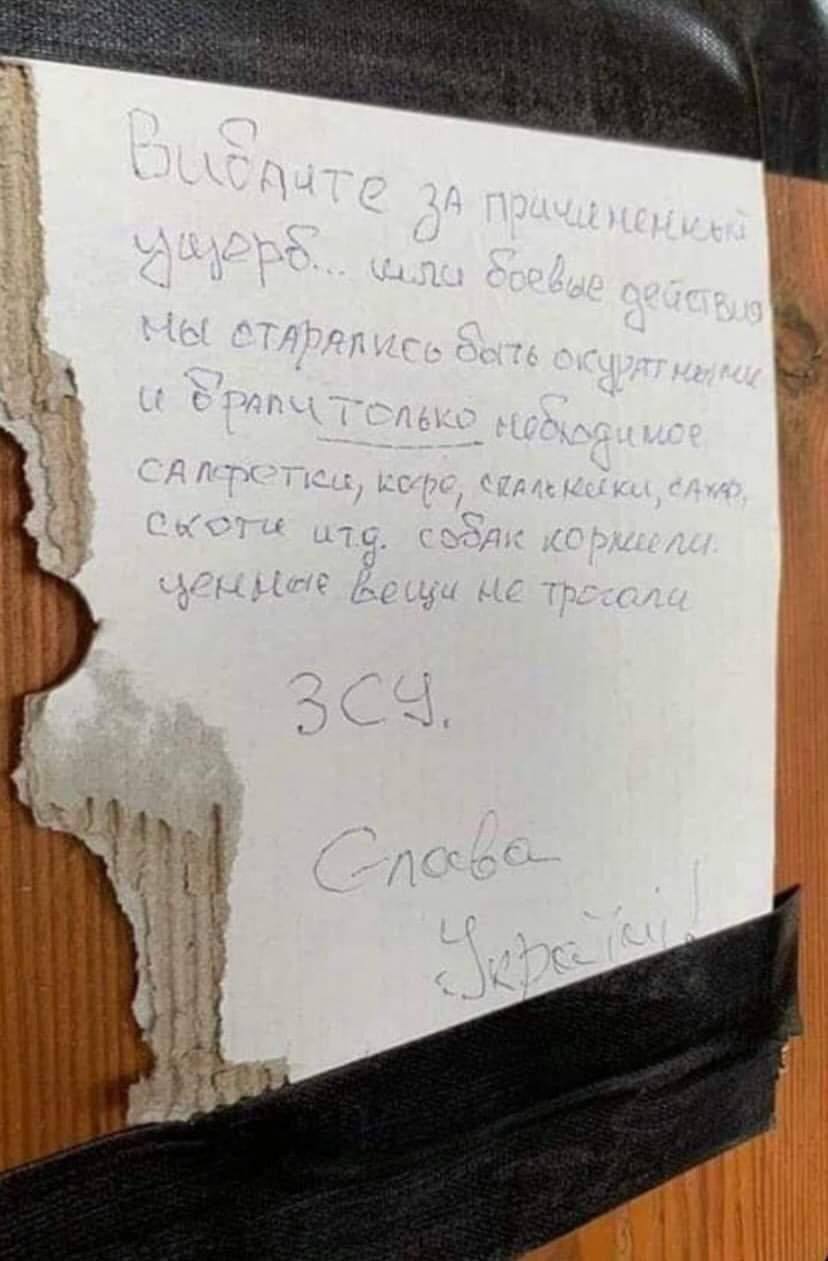 Вибачте за причиненный
ущерб... шли боевые действия
мы старались быть окуратными
и брали только небходимое
салфетки, кофе, спальники, сахар,
скотч итд. собак кормили.
ценные вещи не трогали
ЗСУ.
Слава
Україні!